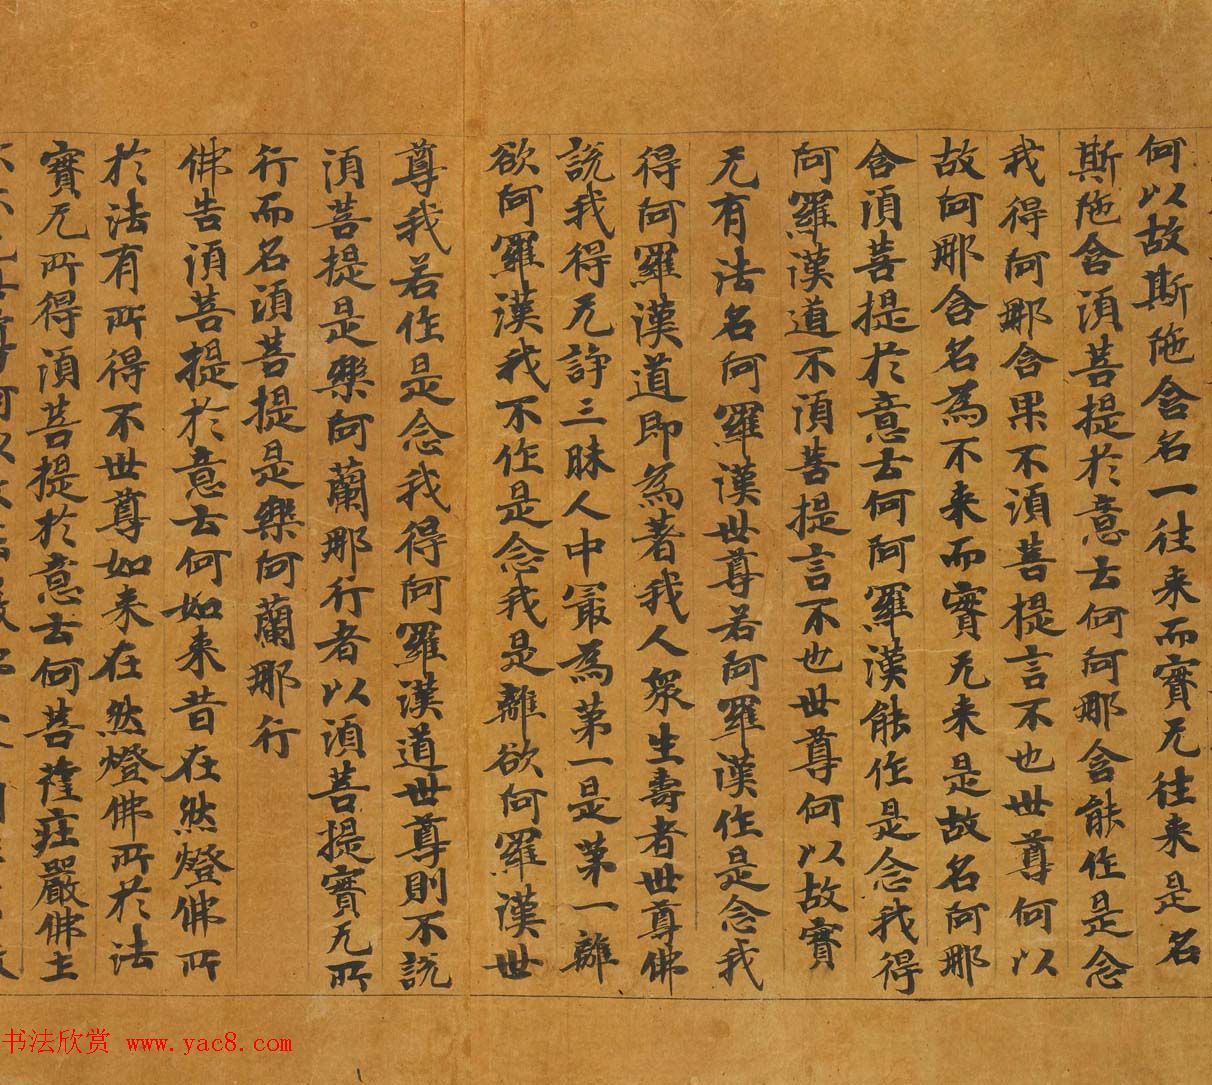 何以故斯陁含名一往来而實无往来是名
斯陁含須菩提於意云何阿那含能作是念
我得阿那含果不須菩提言不也世尊何以
故阿那含名為不来而實无来是故名阿那
含須菩提於意云何阿羅漢能作是念我得
阿羅漢道不須菩提言不也世尊何以故實
无有法名阿羅漢世尊若阿羅漢作是念我
得阿羅漢道即為著我人衆生壽者世尊佛
說我得无諍三昧人中冣為第一是第一離
欲阿羅漢我不作是念我是離欲阿羅漢世
尊我若作是念我得阿羅漢道世尊則不說
須菩提是樂阿蘭那行者以須菩提實无所
行而名須菩提是樂阿蘭那行
佛告須菩提於意云何如来昔在然燈佛所
於法有所得不世尊如来在然燈佛所於法
實无所得須菩提於意云何菩薩莊嚴佛土
书法欣赏 www.yac8.com